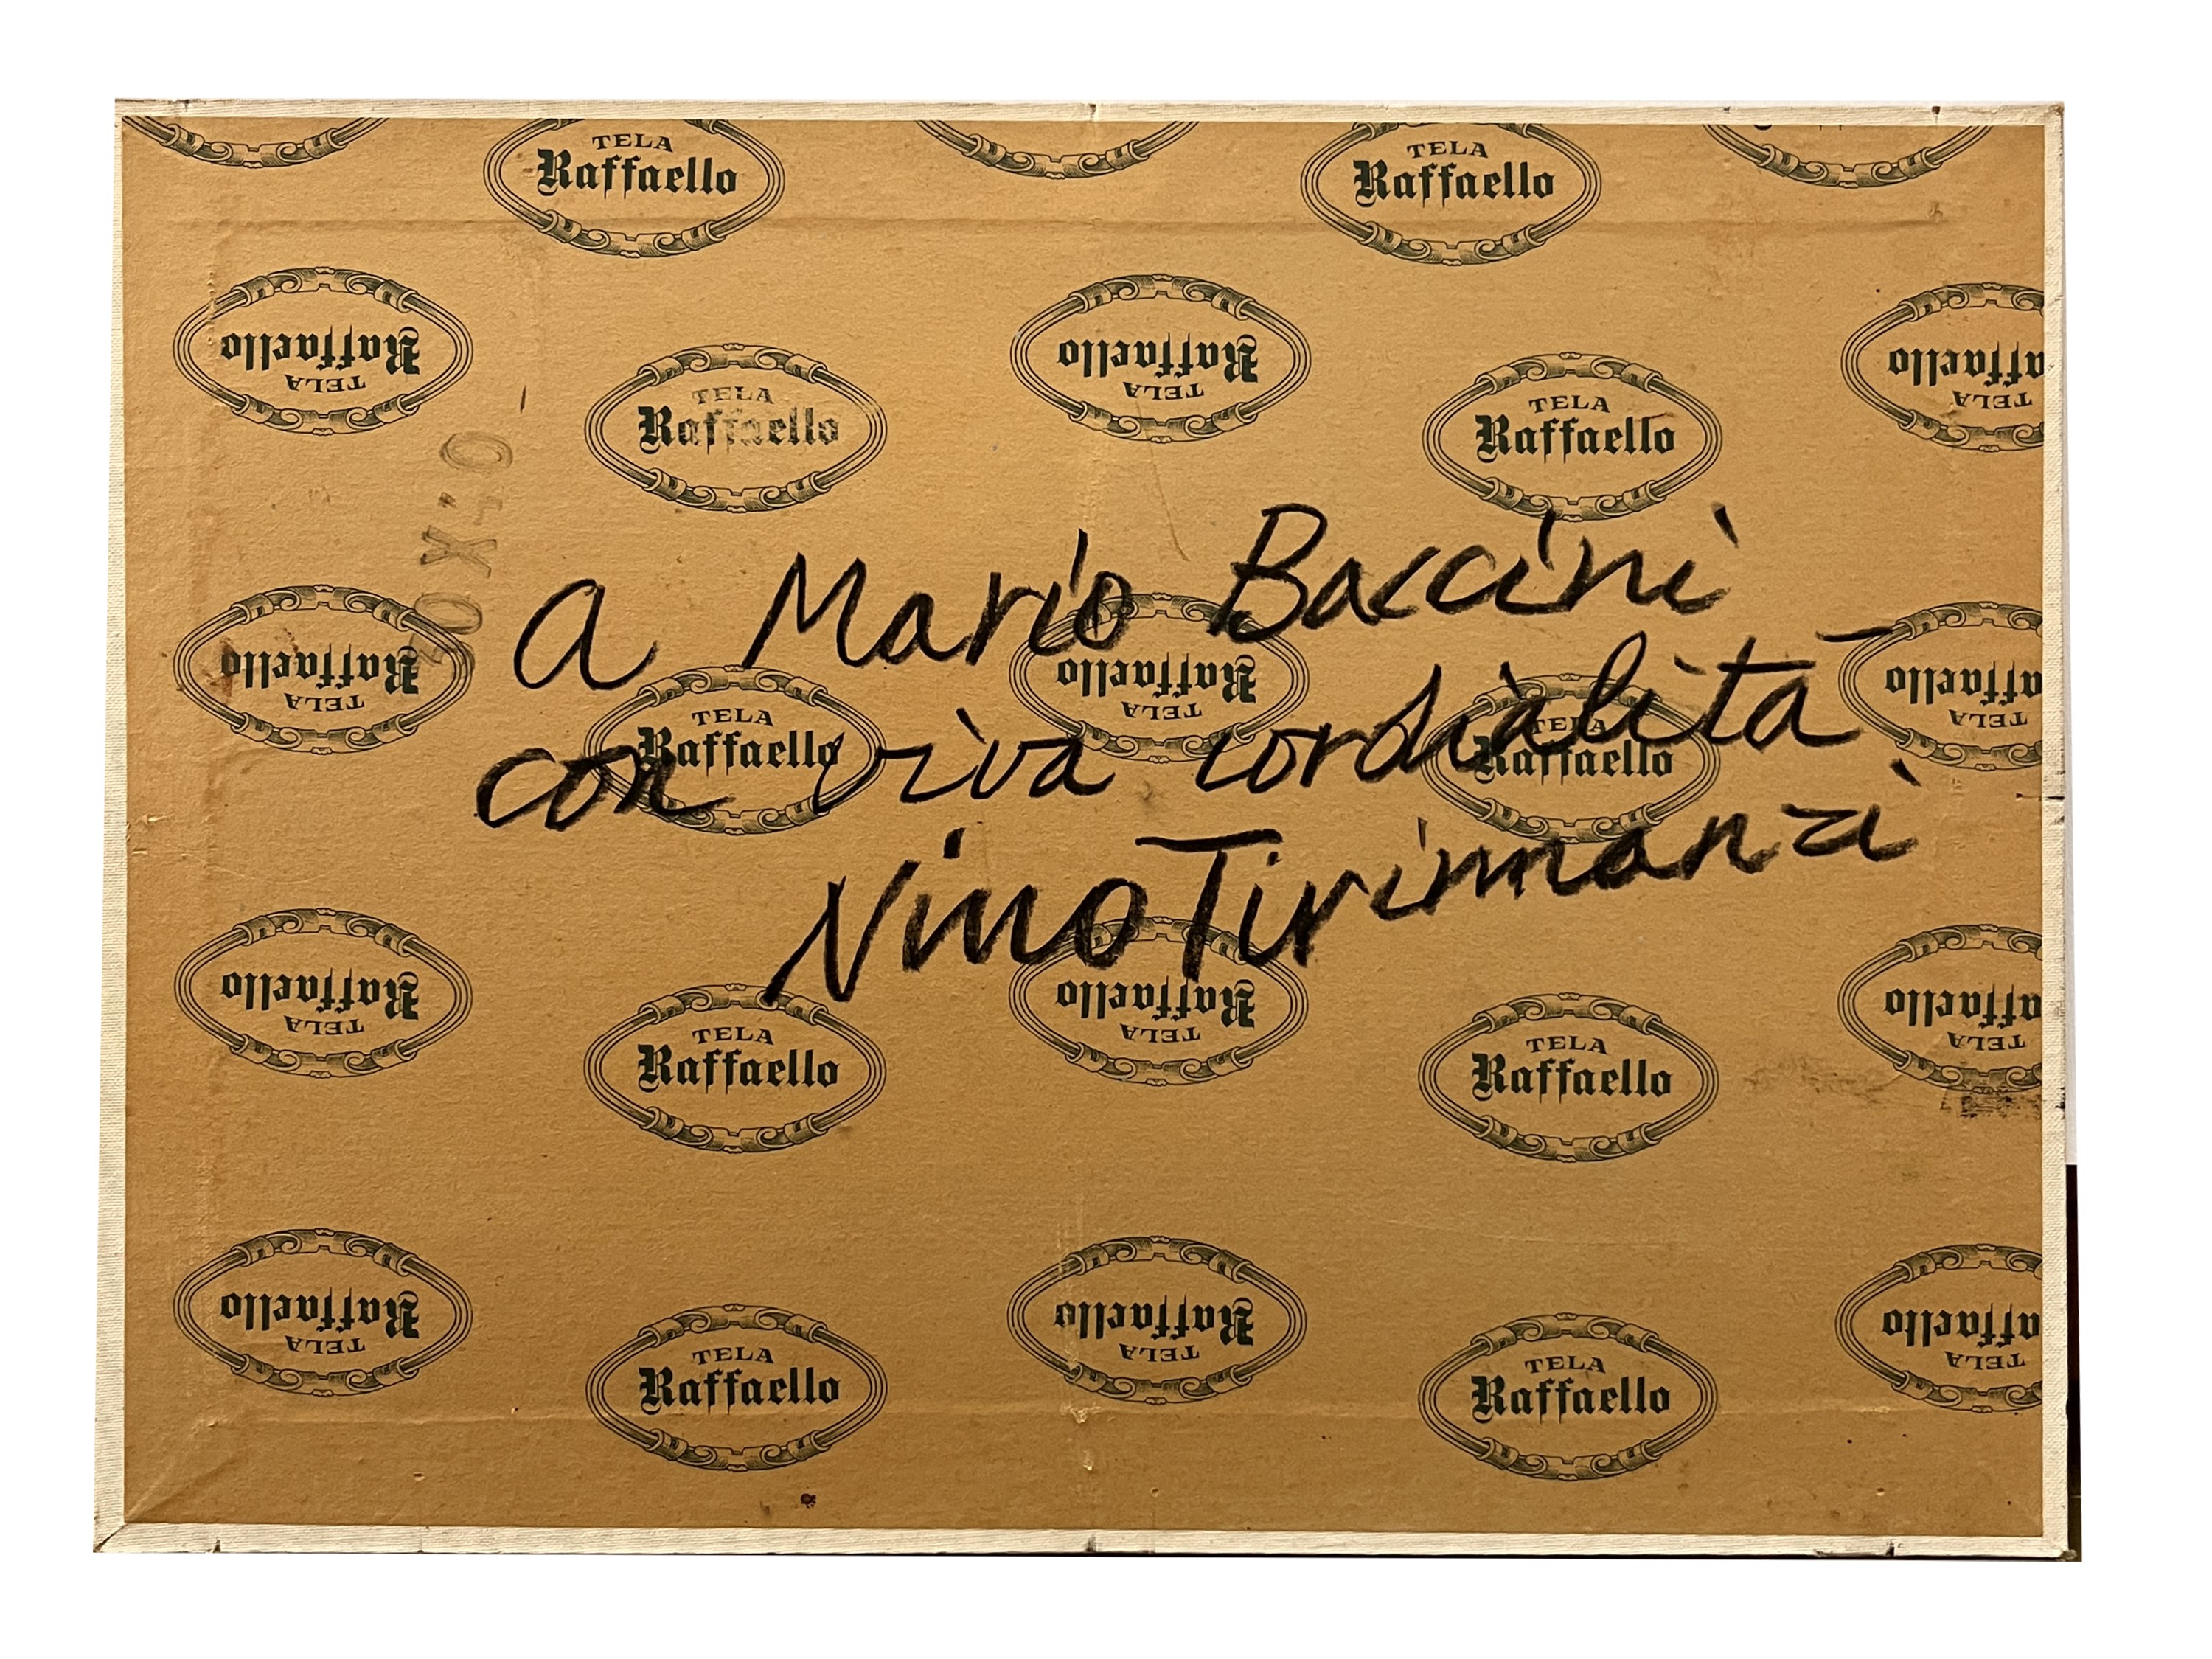 TELA
Raffaello
TELA
Raffaello
TELA
Raffaello
TELA
Raffaello
TELA
Raffaello
TELA
Raffaello
TELA
Raffaello
50 X
A Mario Baccini
con viva cordialità
Nino Tirinnanzi
TELA
Raffaello
TELA
Raffaello
TELA
Raffaello
TELA
Raffaello
TELA
Raffaello
TELA
Raffaello
TELA
Raffaello
TELA
Raffaello
TELA
Raffaello
TELA
Raffaello
TELA
Raffaello
TELA
Raffaello
TELA
Raffaello
TELA
Raffaello
TELA
Raffaello